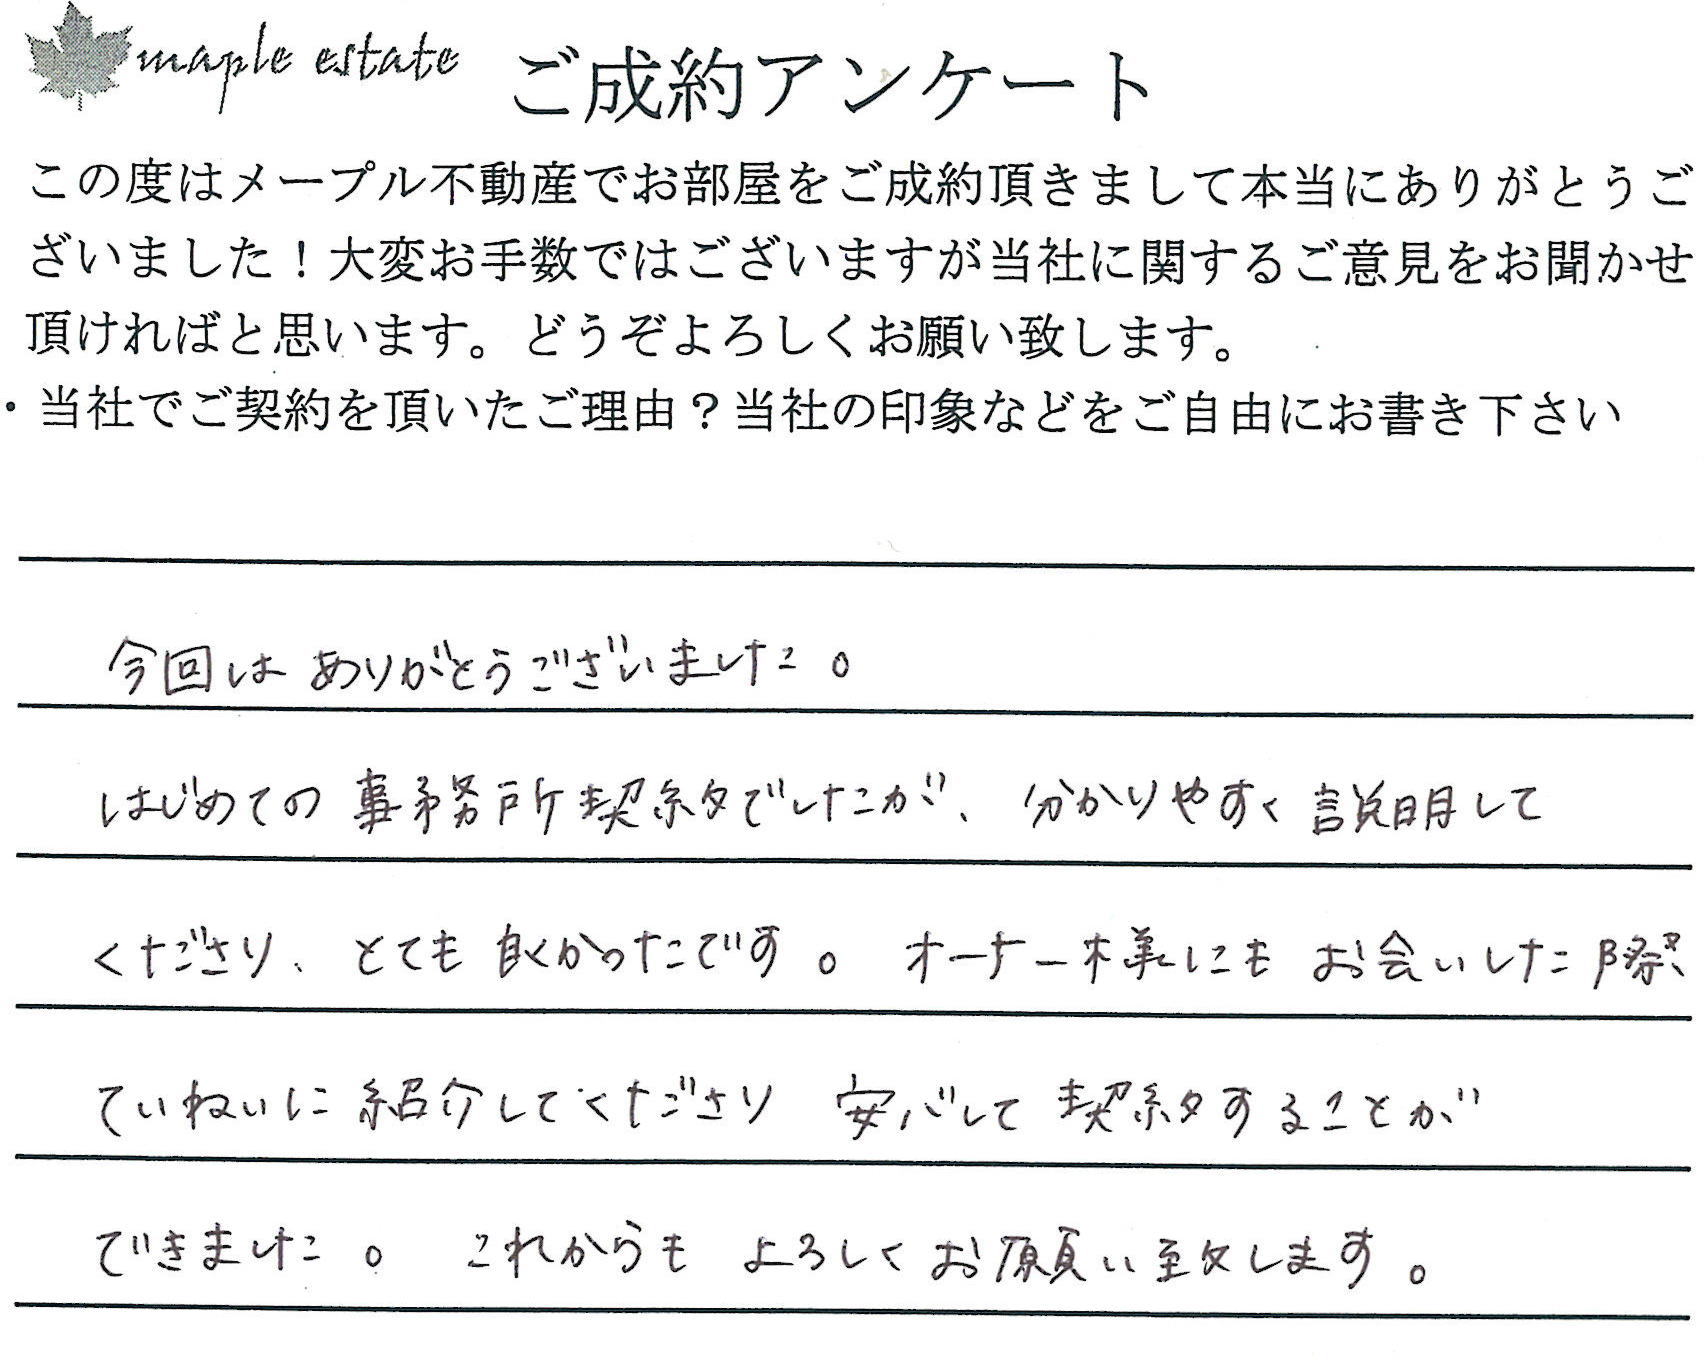 maple estate ご成約アンケート
この度はメープル不動産でお部屋をご成約頂きまして本当にありがとうご
ざいました！大変お手数ではございますが当社に関するご意見をお聞かせ
頂ければと思います。どうぞよろしくお願い致します。
・当社でご契約を頂いたご理由？当社の印象などをご自由にお書き下さい
今回はありがとうございました。
はじめての事務所契約でしたが、分かりやすく説明して
くださり、とても良くかったです。オーナー様にもお会いした際
ていねいに紹介してくださり 安心して契約することが
できました。これからもよろしくお願い致します。